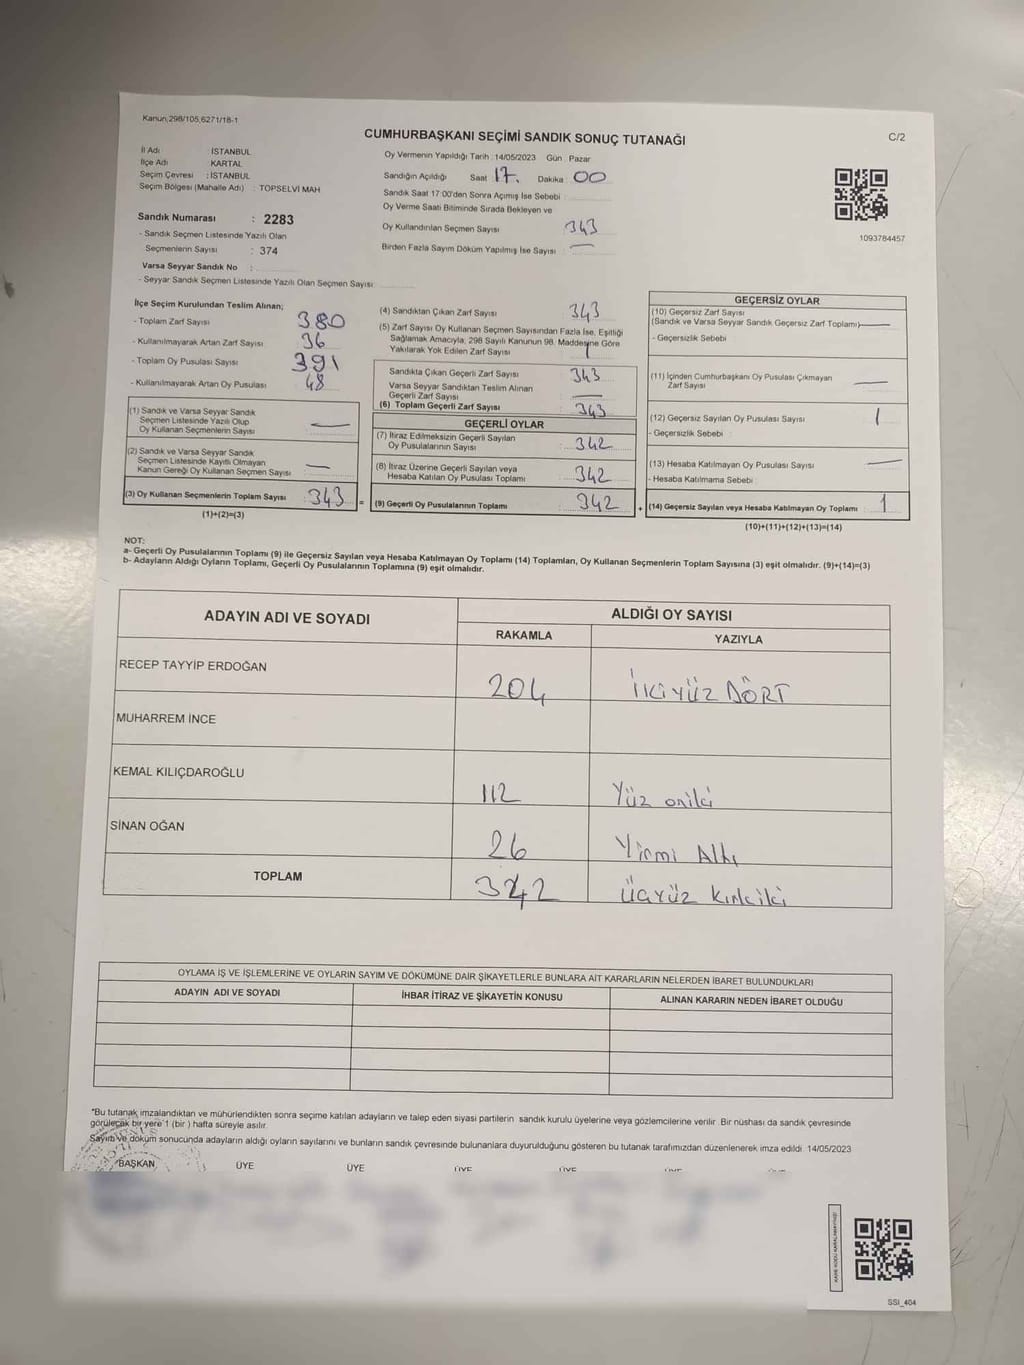 Kanun,298/105,6271/18-1
CUMHURBAŞKANI SEÇİMİ SANDIK SONUÇ TUTANAĞI
C/2
İl Adı : İSTANBUL
İlçe Adı : KARTAL
Seçim Çevresi : İSTANBUL
Seçim Bölgesi (Mahalle Adı) : TOPSELVİ MAH
Sandık Numarası : 2283
- Sandık Seçmen Listesinde Yazılı Olan
Seçmenlerin Sayısı : 374
Varsa Seyyar Sandık No :
- Seyyar Sandık Seçmen Listesinde Yazılı Olan Seçmen Sayısı:
Oy Vermenin Yapıldığı Tarih : 14/05/2023 Gün : Pazar
Sandığın Açıldığı Saat 17. Dakika 00
Sandık Saat 17:00'den Sonra Açımış İse Sebebi
Oy Verme Saati Bitiminde Sırada Bekleyen ve
Oy Kullandırılan Seçmen Sayısı 343
Birden Fazla Sayım Döküm Yapılmış İse Sayısı : —
1093784457
İlçe Seçim Kurulundan Teslim Alınan;
- Toplam Zarf Sayısı 380
- Kullanılmayarak Artan Zarf Sayısı 36
- Toplam Oy Pusulası Sayısı 391
- Kullanılmayarak Artan Oy Pusulası 48
(1) Sandık ve Varsa Seyyar Sandık
Seçmen Listesinde Yazılı Olup
Oy Kullanan Seçmenlerin Sayısı —
(2) Sandık ve Varsa Seyyar Sandık
Seçmen Listesinde Kayıtlı Olmayan
Kanun Gereği Oy Kullanan Seçmen Sayısı —
(3) Oy Kullanan Seçmenlerin Toplam Sayısı 343 =
(1)+(2)=(3)
(4) Sandıktan Çıkan Zarf Sayısı 343
(5) Zarf Sayısı Oy Kullanan Seçmen Sayısından Fazla İse, Eşitliği
Sağlamak Amacıyla, 298 Sayılı Kanunun 98. Maddesine Göre
Yakılarak Yok Edilen Zarf Sayısı
Sandıkta Çıkan Geçerli Zarf Sayısı 343
Varsa Seyyar Sandıktan Teslim Alınan
Geçerli Zarf Sayısı —
(6) Toplam Geçerli Zarf Sayısı 343
GEÇERLİ OYLAR
(7) İtiraz Edilmeksizin Geçerli Sayılan
Oy Pusulalarının Sayısı 342
(8) İtiraz Üzerine Geçerli Sayılan veya
Hesaba Katılan Oy Pusulası Toplamı 342
(9) Geçerli Oy Pusulalarının Toplamı 342 +
GEÇERSİZ OYLAR
(10) Geçersiz Zarf Sayısı
(Sandık ve Varsa Seyyar Sandık Geçersiz Zarf Toplamı) —
- Geçersizlik Sebebi
(11) İçinden Cumhurbaşkanı Oy Pusulası Çıkmayan
Zarf Sayısı —
(12) Geçersiz Sayılan Oy Pusulası Sayısı 1
- Geçersizlik Sebebi :
(13) Hesaba Katılmayan Oy Pusulası Sayısı —
- Hesaba Katılmama Sebebi
(14) Geçersiz Sayılan veya Hesaba Katılmayan Oy Toplamı 1
(10)+(11)+(12)+(13)=(14)
NOT:
a- Geçerli Oy Pusulalarının Toplamı (9) ile Geçersiz Sayılan veya Hesaba Katılmayan Oy Toplamı (14) Toplamları, Oy Kullanan Seçmenlerin Toplam Sayısına (3) eşit olmalıdır. (9)+(14)=(3)
b- Adayların Aldığı Oyların Toplamı, Geçerli Oy Pusulalarının Toplamına (9) eşit olmalıdır.
ADAYIN ADI VE SOYADI ALDIĞI OY SAYISI
RAKAMLA YAZIYLA
RECEP TAYYİP ERDOĞAN 204 İKİYÜZ DÖRT
MUHARREM İNCE
KEMAL KILIÇDAROĞLU 112 Yüz oniki
SİNAN OĞAN 26 Yirmi Altı
TOPLAM 342 Üçyüz kırkiki
OYLAMA İŞ VE İŞLEMLERİNE VE OYLARIN SAYIM VE DÖKÜMÜNE DAİR ŞİKAYETLERLE BUNLARA AİT KARARLARIN NELERDEN İBARET BULUNDUKLARI
ADAYIN ADI VE SOYADI İHBAR İTİRAZ VE ŞİKAYETİN KONUSU ALINAN KARARIN NEDEN İBARET OLDUĞU
"Bu tutanak imzalandıktan ve mühürlendikten sonra seçime katılan adayların ve talep eden siyasi partilerin sandık kurulu üyelerine veya gözlemcilerine verilir. Bir nüshası da sandık çevresinde
görülecek bir yere 1 (bir ) hafta süreyle asılır.
Sayım ve döküm sonucunda adayların aldığı oyların sayılarını ve bunların sandık çevresinde bulunanlara duyurulduğunu gösteren bu tutanak tarafımızdan düzenlenerek imza edildi. 14/05/2023
BAŞKAN ÜYE ÜYE ÜYE ÜYE
SSI_404